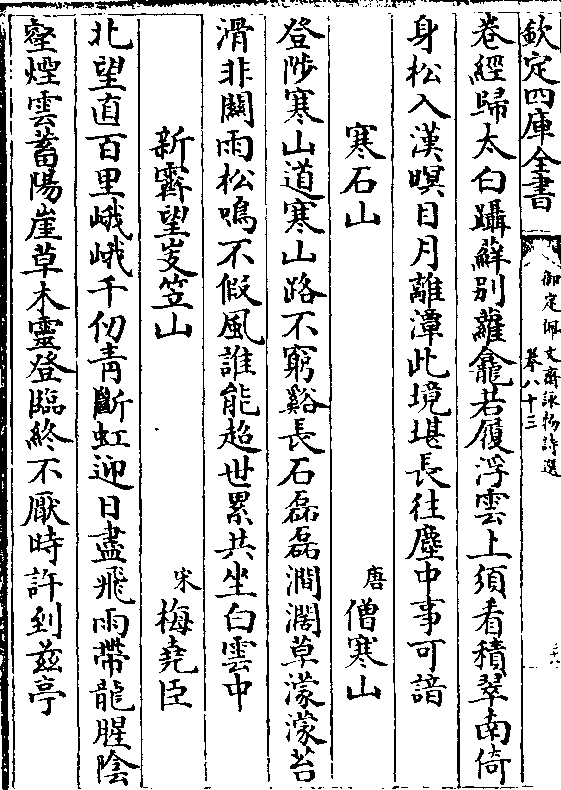 欽定四庫全書
御定佩文齋詠物詩選
卷八十三
卷經歸太白躡蘚别蘿龕若履浮雲上須看積翠南倚
身松入漢暝目月離潭此境堪長往塵中事可諳
寒石山
唐 僧寒山
登陟寒山道寒山路不窮谿長石磊磊澗濶草濛濛苔
滑非關雨松鳴不假風誰能超世累共坐白雲中
新霽望岌笠山
宋 梅堯臣
北望直百里峨峨千仞青斷虹迎日盡飛雨帶龍腥隂
壑煙雲蓄陽崖草木靈登臨終不厭時許到兹亭